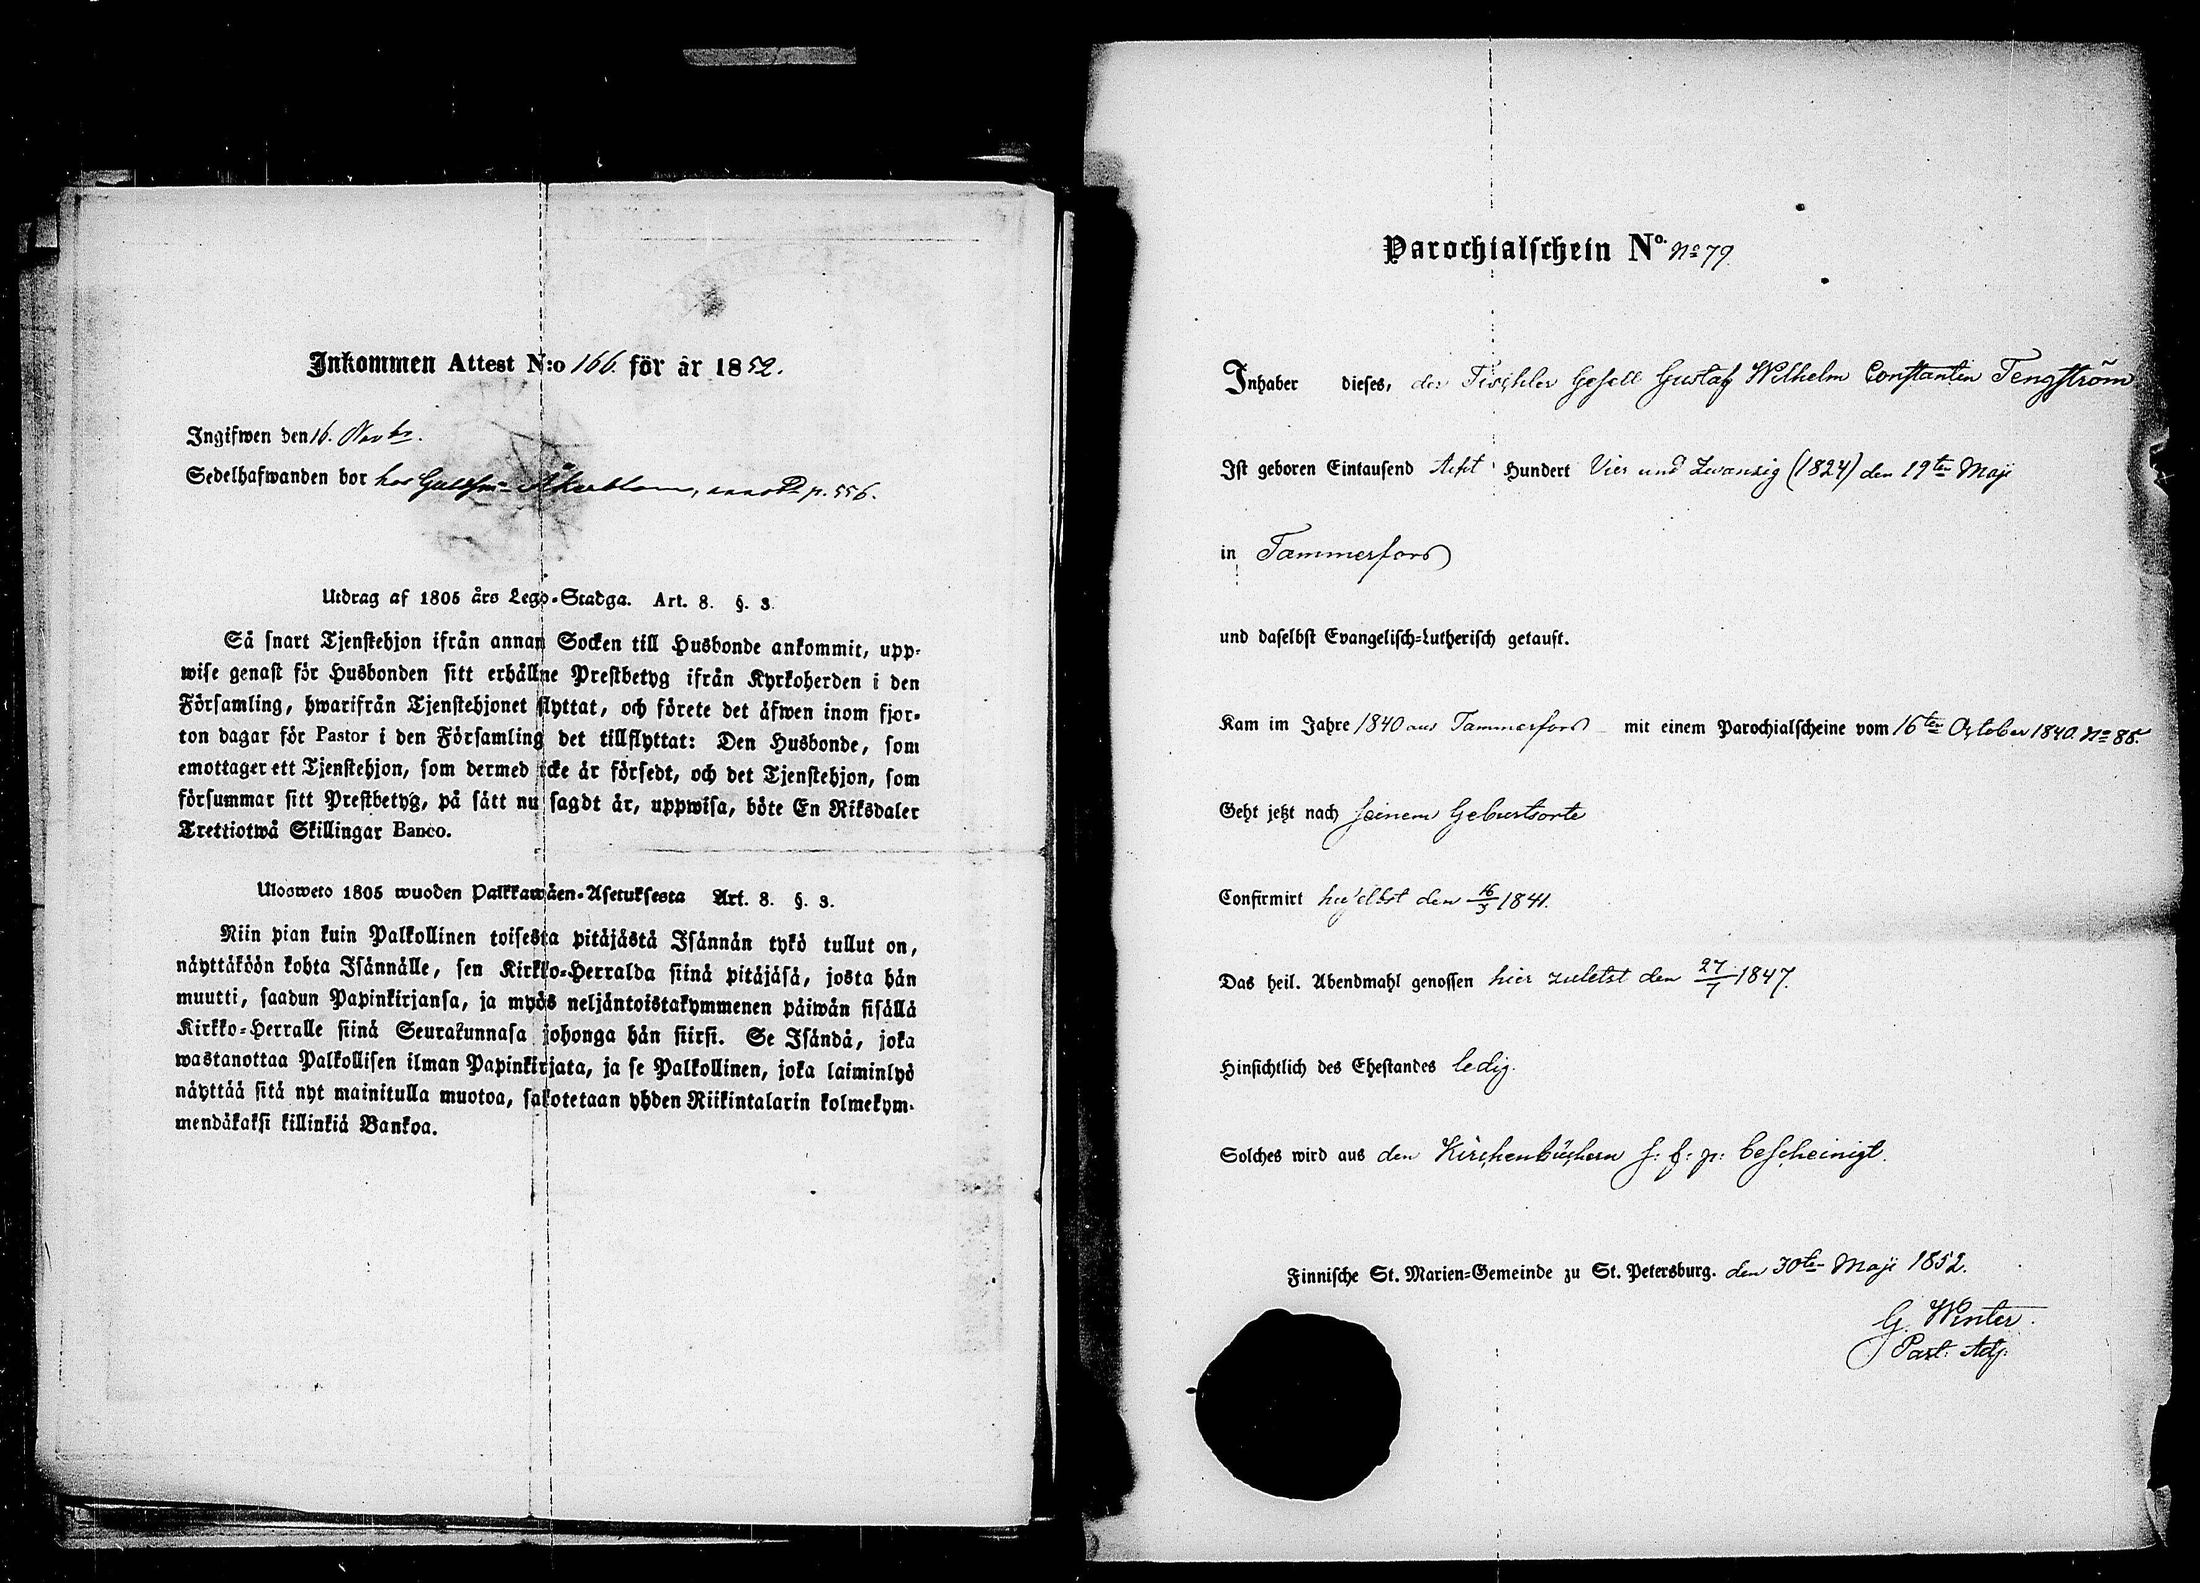 Inkommen Attest N:o 166. för år 1852.
Ingifwen den 16. Novbr.
Sedelhafwanden bor hos Åkerblom, p. 556.
Utdrag af 1805 års Lego-Stadga. Art. 8. §. 3.
Så snart Tjenstehjon ifrån annan Socken till Husbonde ankommit, upp-
wise genast för Husbonden sitt erhållne Prestbetyg ifrån Kyrkoherden i den
Församling, hwarifrån Tjenstehjonet flyttat, och förete det äfwen inom fjor-
ton dagar för Pastor i den Församling det tillflyttat: Den Husbonde, som
emottager ett Tjenstehjon, som dermed icke är försedt, och det Tjenstehjon, som
försummar sitt Prestbetyg, på sätt nu sagdt är, uppwisa, böte En Riksdaler
Trettiotwå Skillingar Banco.
Ulosweto 1805 wuoden Palkkawäen-Asetuksesta Art. 8. §. 3.
Niin pian kuin Palkollinen toisesta pitäjästä Isännän tykö tullut on,
näyttäköön kohta Isännälle, sen Kirkko-Herralda siinä pitäjäsä, josta hän
muutti, saadun Papinkirjansa, ja myös neljäntoistakymmenen päiwän sisällä
Kirkko-Herralle siinä Seurakunnasa johonga hän siirsi. Se Isändä, joka
wastanottaa Palkollisen ilman Papinkirjata, ja se Palkollinen, joka laiminlyö
näyttää sitä nyt mainitulla muotoa, sakotetaan yhden Riikintalarin kolmekym-
mendäkaksi killinkiä Bankoa.
Parochialschein No. No 79
Inhaber dieses, der Tischler Gesell Gustaf Wilhelm Constantin Tengström
Ist geboren Eintausend Acht Hundert Vier und Zwanzig (1824) den 19ten Maji
in Tammerfors
und daselbst Evangelisch-Lutherisch getauft.
Kam im Jahre 1840 aus Tammerfors mit einem Parochialscheine vom 16ten October 1840 No 85.
Geht jetzt nach seinem Geburtsorte
Confirmirt hieselbst den 16/3 1841.
Das heil. Abendmahl genossen hier zuletzt den 27/7 1847.
Hinsichtlich des Ehestandes ledig.
Solches wird aus den Kirchenbüchern s: f: p: bescheinigt.
Finnische St. Marien-Gemeinde zu St. Petersburg. den 30ten Maji 1852.
G. Winter.
Past. Adj.